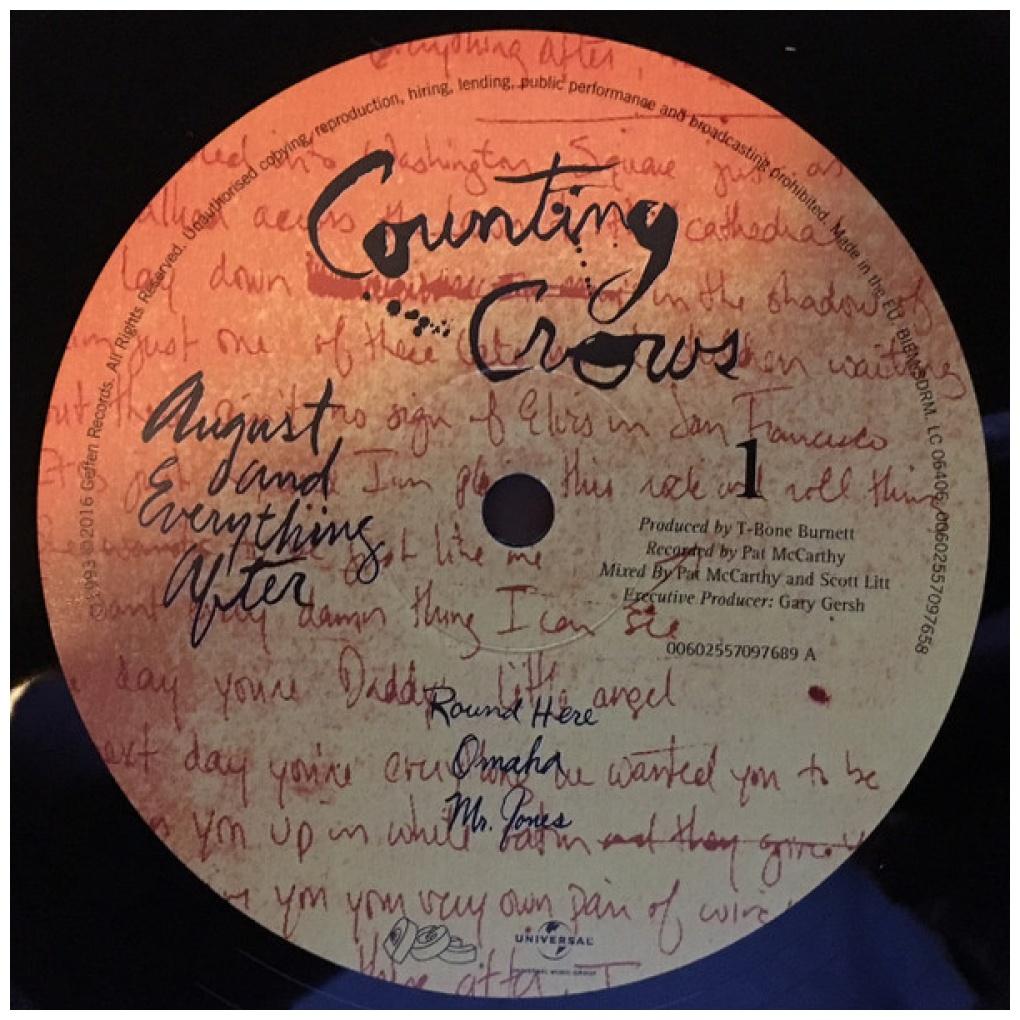 everything after,
℗1993 ©2016 Geffen Records. All Rights Reserved. Unauthorised copying, reproduction, hiring, lending, public performance and broadcasting prohibited. Made in the EU. BIEM/SDRM. LC 06406. 00602557097658
Counting
Crows
August
and
Everything
After
1
Produced by T-Bone Burnett
Recorded by Pat McCarthy
Mixed By Pat McCarthy and Scott Litt
Executive Producer: Gary Gersh
00602557097689 A
Round Here
Omaha
Mr. Jones
into Washington Square just as
across cathedral
lay down in the shadow of
just one of these waiting
no sign of Elvis in San Francisco
this rock and roll thing
just like me
damn thing I can see
day you're Daddy's little angel
next day you're wanted you to be
you up in white satin and they give
you your very own pair of
after I
UNIVERSAL
UNIVERSAL MUSIC GROUP